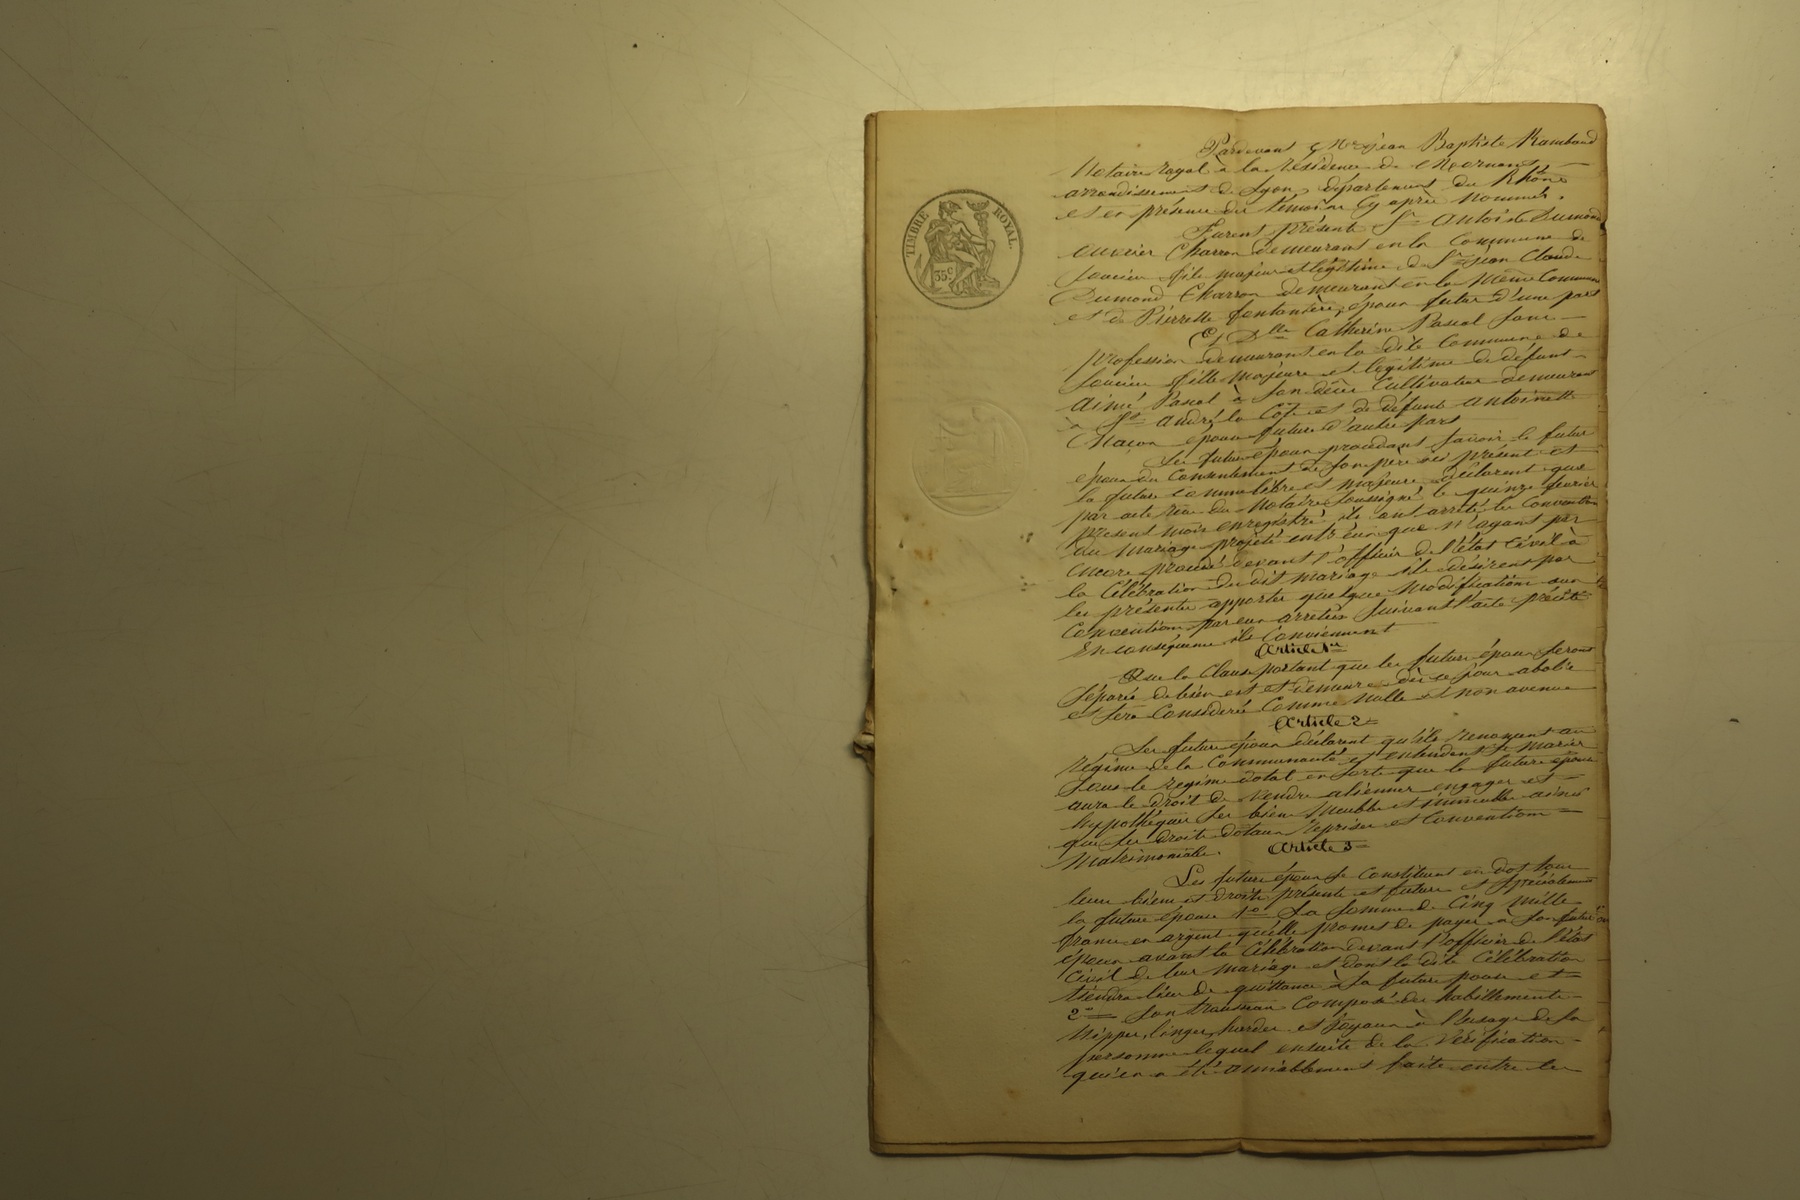 TIMBRE ROYAL.
35 c.
Pardevant Me Jean Baptiste Rambaud
Notaire royal à la résidence de Mornant
arrondissement de Lyon, département du Rhône
et en présence des témoins cy après nommés,
Furent présents Sr Antoine Dumond
ouvrier Charron demeurant en la Commune de
Soucieu fils majeur et légitime de Sr Jean Claude
Dumond Charron demeurant en la même Commune
et de Pierrette époux futur d'une part
Et Dlle Catherine Pascal sans
profession demeurant en la dite Commune de
Soucieu fille majeure et légitime de défunt
Aimé Pascal à son décès Cultivateur demeurant
à St André la Côte et de défunte Antoinette
épouse future d'autre part
Les futurs époux procédant savoir le futur
époux du Consentement de son père ici présent et
la future comme libre et majeure, déclarent que
par acte reçu du Notaire soussigné le quinze février
présent mois enregistré ils ont arrêté les Conventions
du Mariage projeté entr'eux que n'ayant pas
encore procédé devant l'officier de l'état Civil à
la Célébration du dit mariage ils désirent par
les présentes apporter quelque Modifications aux
Conventions par eux arrêtées suivant l'acte précité
En conséquence ils Conviennent
Article 1er
Que la Clause portant que les futurs époux seront
séparés de biens est et demeure dès ce jour abolie
et sera Considérée Comme nulle et non avenue
Article 2
Les futurs époux déclarent qu'ils renoncent au
régime de la Communauté et entendent se marier
sous le regime dotal en sorte que la future épouse
aura le droit de vendre aliénner engager et
hypothéquer ses biens Meubles et immeubles ainsi
que ses droits dotaux reprises et Conventions
Matrimoniales.
Article 3
Les futurs époux se Constituent en dot tous
leurs biens et droits présents et futurs et spécialement
la future épouse 1o La somme de Cinq mille
francs en argent qu'elle promet de payer à son futur
époux avant la Célébration devant l'officier de l'état
Civil de leur mariage et dont la dite Célébration
tiendra lieu de quittance à la future épouse et
2o Son trousseau Composé des habillements
Nippes, linges, hardes et joyaux à l'usage de sa
personne lequel ensuite de la Vérification
qui en a été amiablement faite entre les